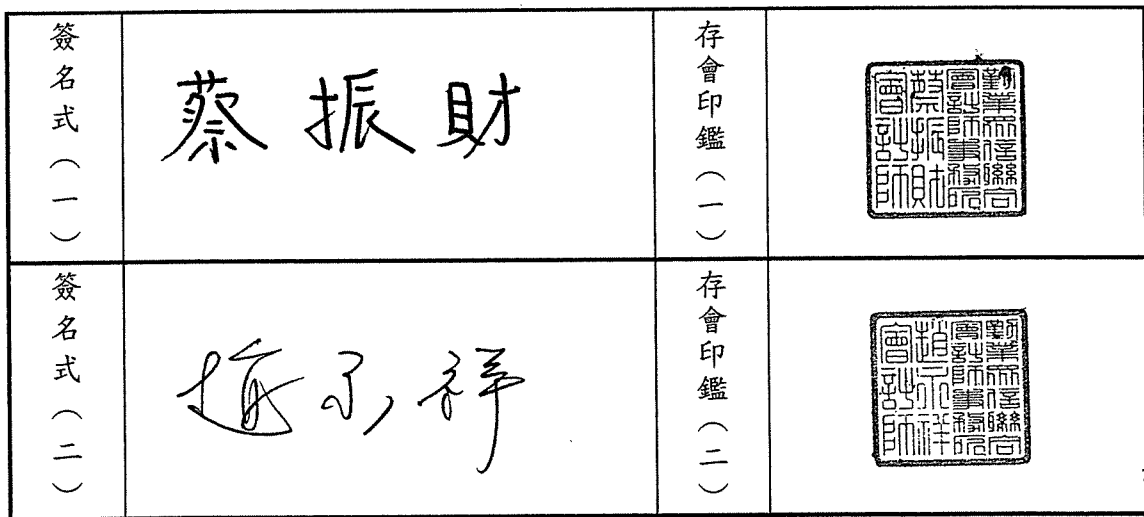 簽名式（一）
蔡振財
存會印鑑（一）
勤業眾信聯合
會計師事務所
蔡振財
會計師
簽名式（二）
存會印鑑（二）
勤業眾信聯合
會計師事務所
會計師